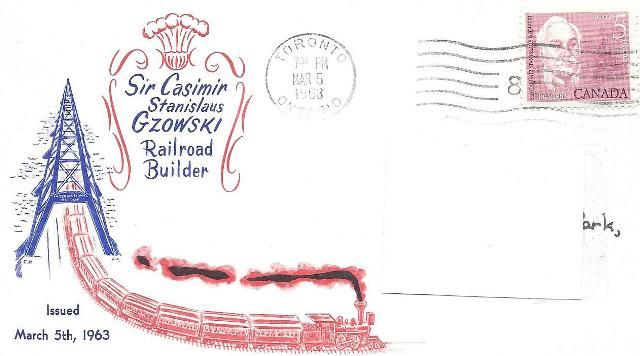 Sir Casimir
Stanislaus
GZOWSKI
Railroad
Builder
TORONTO
7 PM
MAR 5
1963
ONTARIO
8
5
CANADA
INTERNATIONAL
ark,
Issued
March 5th, 1963